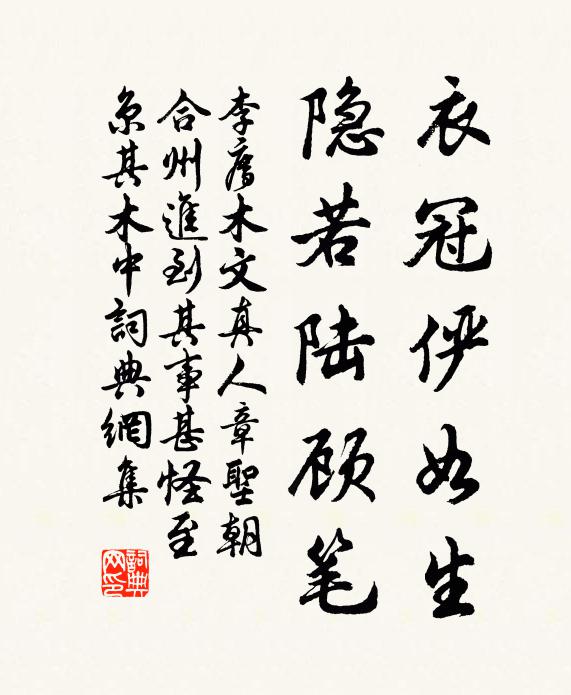 衣冠俨如生
隐若陆顾笔
李廌木文真人章聖朝
合州進到其事甚怪至
京其木中詞典網集
詞典网印